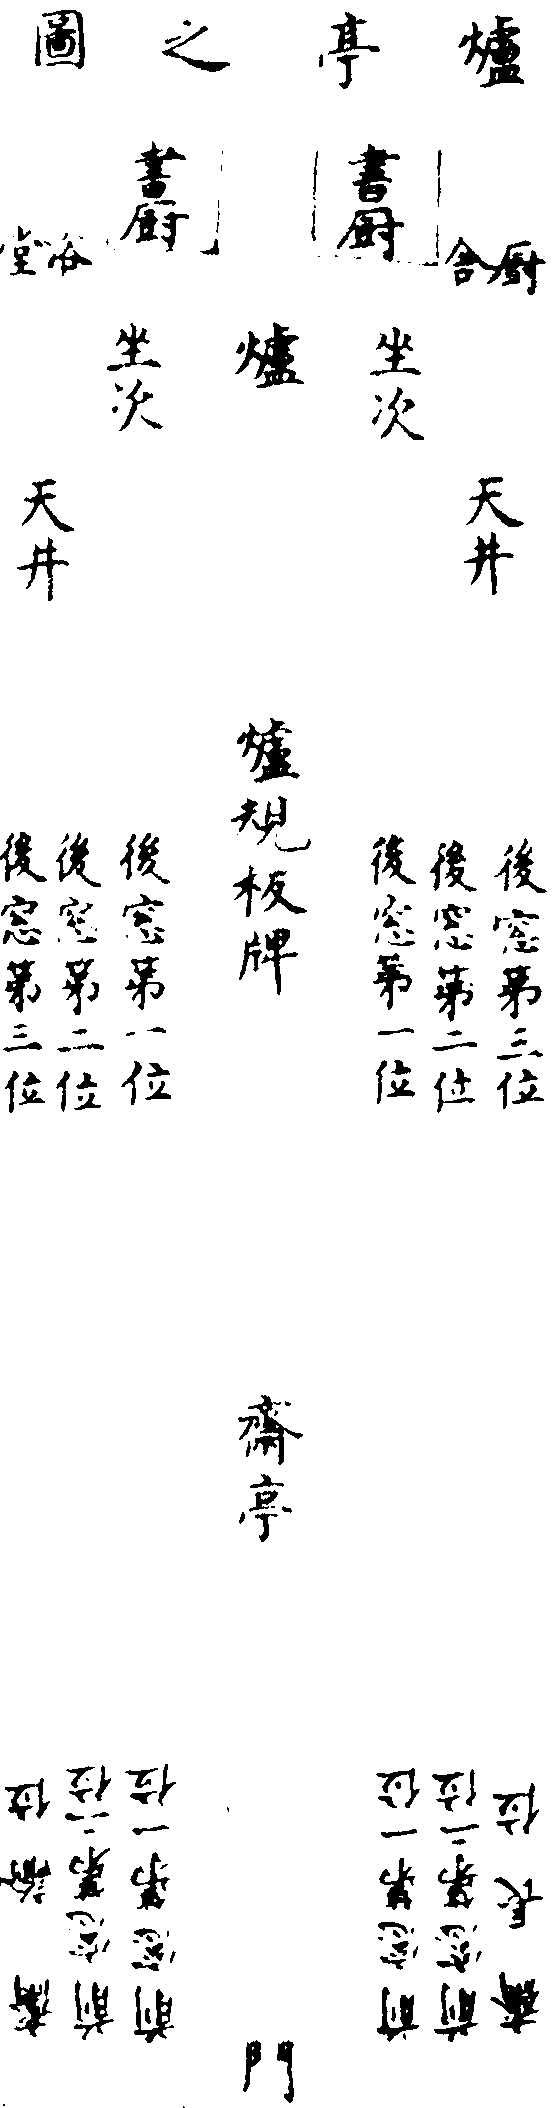 爐亭之圖
書厨
書厨
厨舍
浴堂
坐次
爐
坐次
天井
天井
爐規板牌
後窓第三位
後窓第二位
後窓第一位
後窓第一位
後窓第二位
後窓第三位
齋亭
齋長位
前窓第二位
前窓第一位
前窓第一位
前窓第二位
齋諭位
門